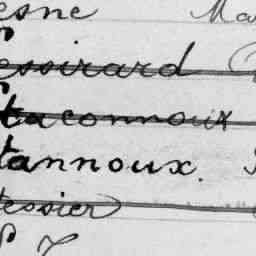 esne Ma
essirard
taconnoux
tannoux.
tessier